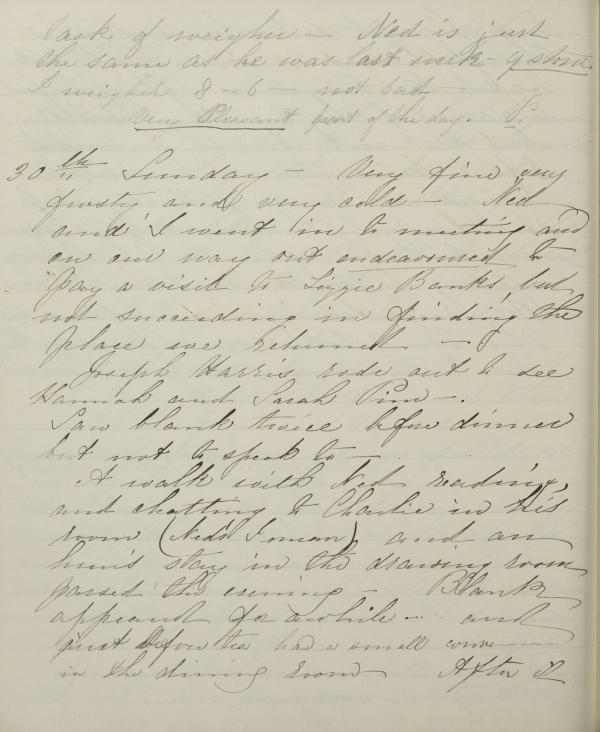 task of weigher — Ned is just
the same as he was last week — 9 stone
I weighed 8 – 6 — not bad —
Very Pleasant part of the day. P.
30th Sunday — Very fine very
frosty and very cold — Ned
and I went in to meeting and
on our way out endeavoured to
pay a visit to Lizzie Banks, but
not succeeding in finding the
place we returned —
Joseph Harris rode out to see
Hannah and Sarah Pim —.
Saw blank twice before dinner
but not to speak to —
A walk with Ned reading,
and chatting to Charlie in his
room (Ned's & mean) and an
hour's stay in the drawing room
passed the evening — Blank
appeared for awhile — and
just before tea had a small conve—
in the dining room After